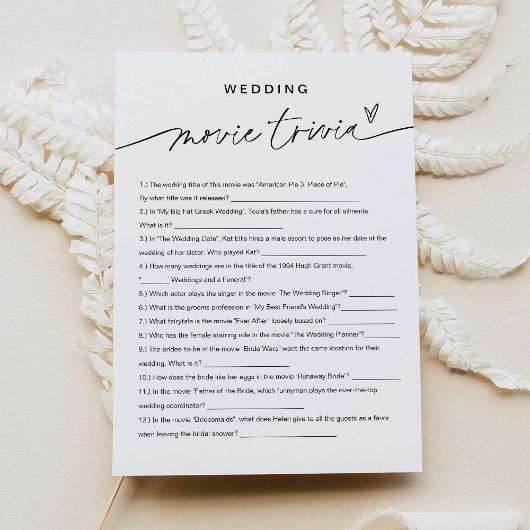 WEDDING
movie trivia
1.) The working title of this movie was "American Pie 3: Piece of Pie".
By what title was it released? ____________________
2.) In "My Big Fat Greek Wedding", Toula's father has a cure for all ailments.
What is it? ____________________
3.) In "The Wedding Date", Kat Ellis hires a male escort to pose as her date at the
wedding of her sister. Who played Kat? ____________________
4.) How many weddings are in the title of the 1994 Hugh Grant movie,
"______ Weddings and a Funeral"?
5.) Which actor plays the singer in the movie "The Wedding Singer"? __________
6.) What is the grooms profession in "My Best Friend's Wedding"? __________
7.) What fairytale is the movie "Ever After" loosely based on? __________
8.) Who has the female starring role in the movie "The Wedding Planner"? ________
9.) The brides-to-be in the movie "Bride Wars" want the same location for their
wedding. What is it? ________________
10.) How does the bride like her eggs in the movie "Runaway Bride"? __________
11.) In the movie "Father of the Bride, which funnyman plays the over-the-top
wedding coordinator? __________________
12.) In the movie "Bridesmaids", what does Helen give to all the guests as a favor
when leaving the bridal shower? __________________